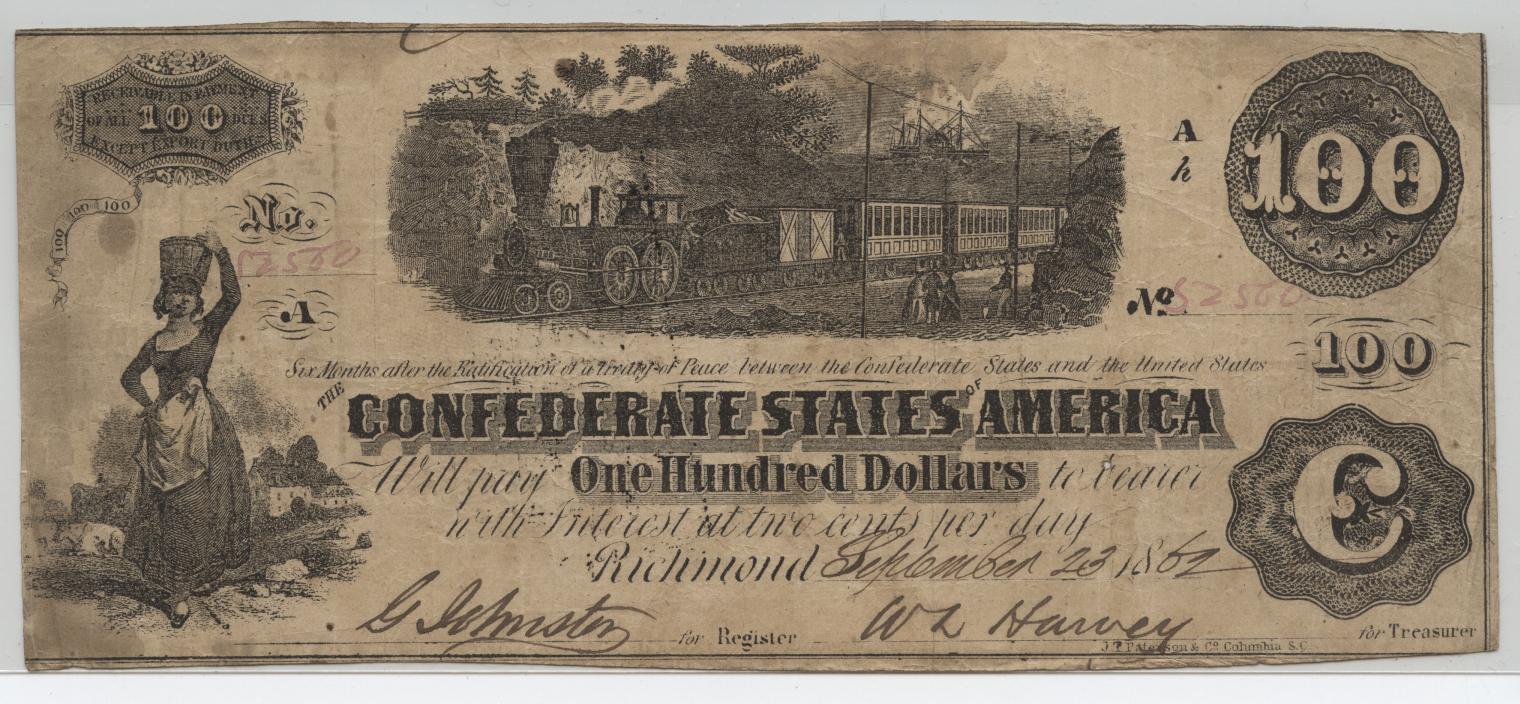 RECEIVABLE IN PAYMENT
OF ALL 100 DUES
EXCEPT EXPORT DUTIES
100 100 100
No.
52560
A
A
h
100
No 52560
100
Six Months after the Ratification of a Treaty of Peace between the Confederate States and the United States
THE CONFEDERATE STATES OF AMERICA
Will pay One Hundred Dollars to bearer
with Interest at two cents per day
Richmond September 23 1862
C
G Johnston for Register W L Harvey for Treasurer
J.T. Paterson & Co Columbia S.C.